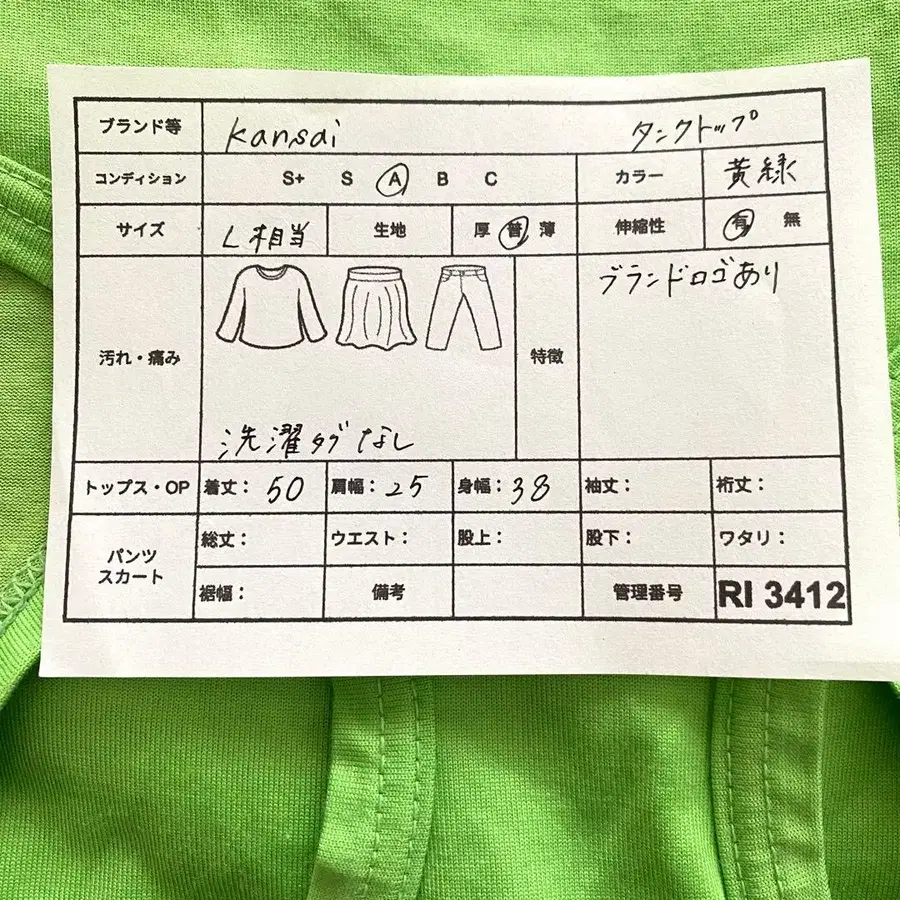 ブランド等 Kansai タンクトップ
コンディション S+ S A B C カラー 黄緑
サイズ L相当 生地 厚 普 薄 伸縮性 有 無
汚れ・痛み 特徴 ブランドロゴあり
洗濯タグなし
トップス・OP 着丈: 50 肩幅: 25 身幅: 38 袖丈: 裄丈:
パンツ スカート 総丈: ウエスト: 股上: 股下: ワタリ:
裾幅: 備考 管理番号 RI 3412